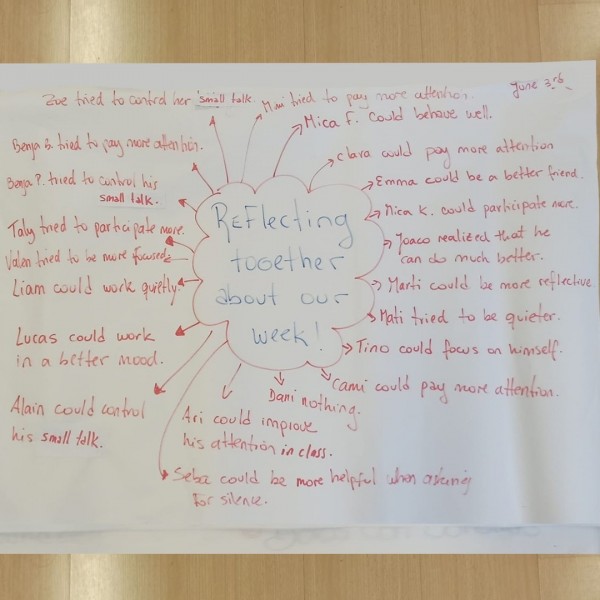 June 3rd
Zoe tried to control her small talk.
Mimi tried to pay more attention.
Mica F. could behave well.
Clara could pay more attention
Emma could be a better friend.
Mica K. could participate more.
Joaco realized that he
can do much better.
Marti could be more reflective
Mati tried to be quieter.
Tino could focus on himself.
Cami could pay more attention.
Dani nothing.
Ari could improve
his attention in class.
Seba could be more helpful when asking
for silence.
Alain could control
his small talk.
Lucas could work
in a better mood.
Liam could work quietly.
Valen tried to be more focused
Taly tried to participate more.
Benja P. tried to control his
small talk.
Benja B. tried to pay more attention.
REFlecting
together
about our
week!